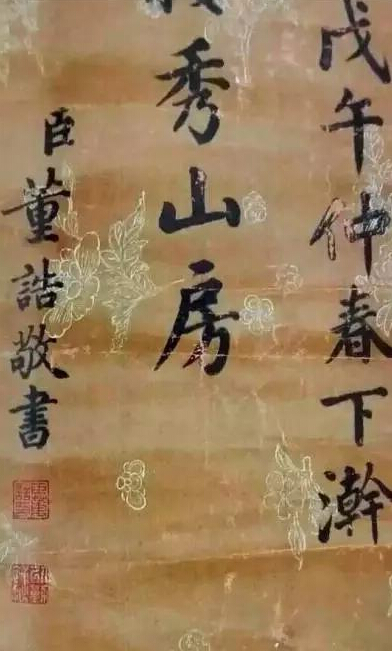 戊午仲春下澣
秀山房
臣董誥敬書